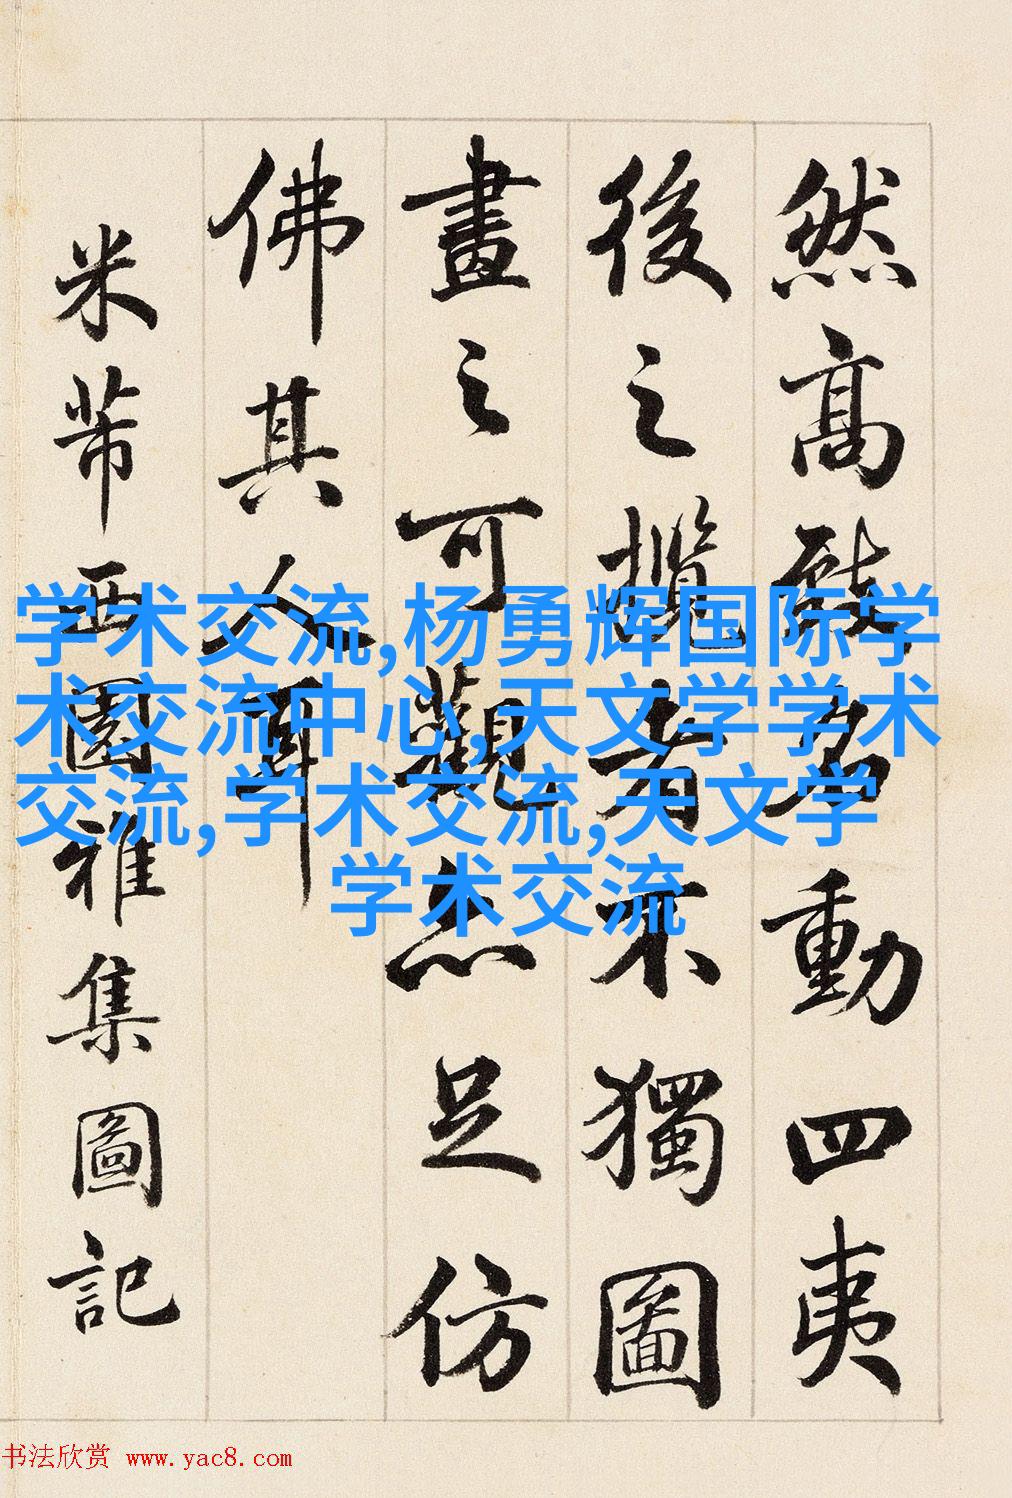 然高致名動四夷
後之攬者不獨圖
畫之可觀亦足仿
佛其人耳
米芾西園雅集圖記
学术交流,杨勇辉国际学
术交流中心,天文学学术
交流,学术交流,天文学
学术交流
书法欣赏 www.yac8.com